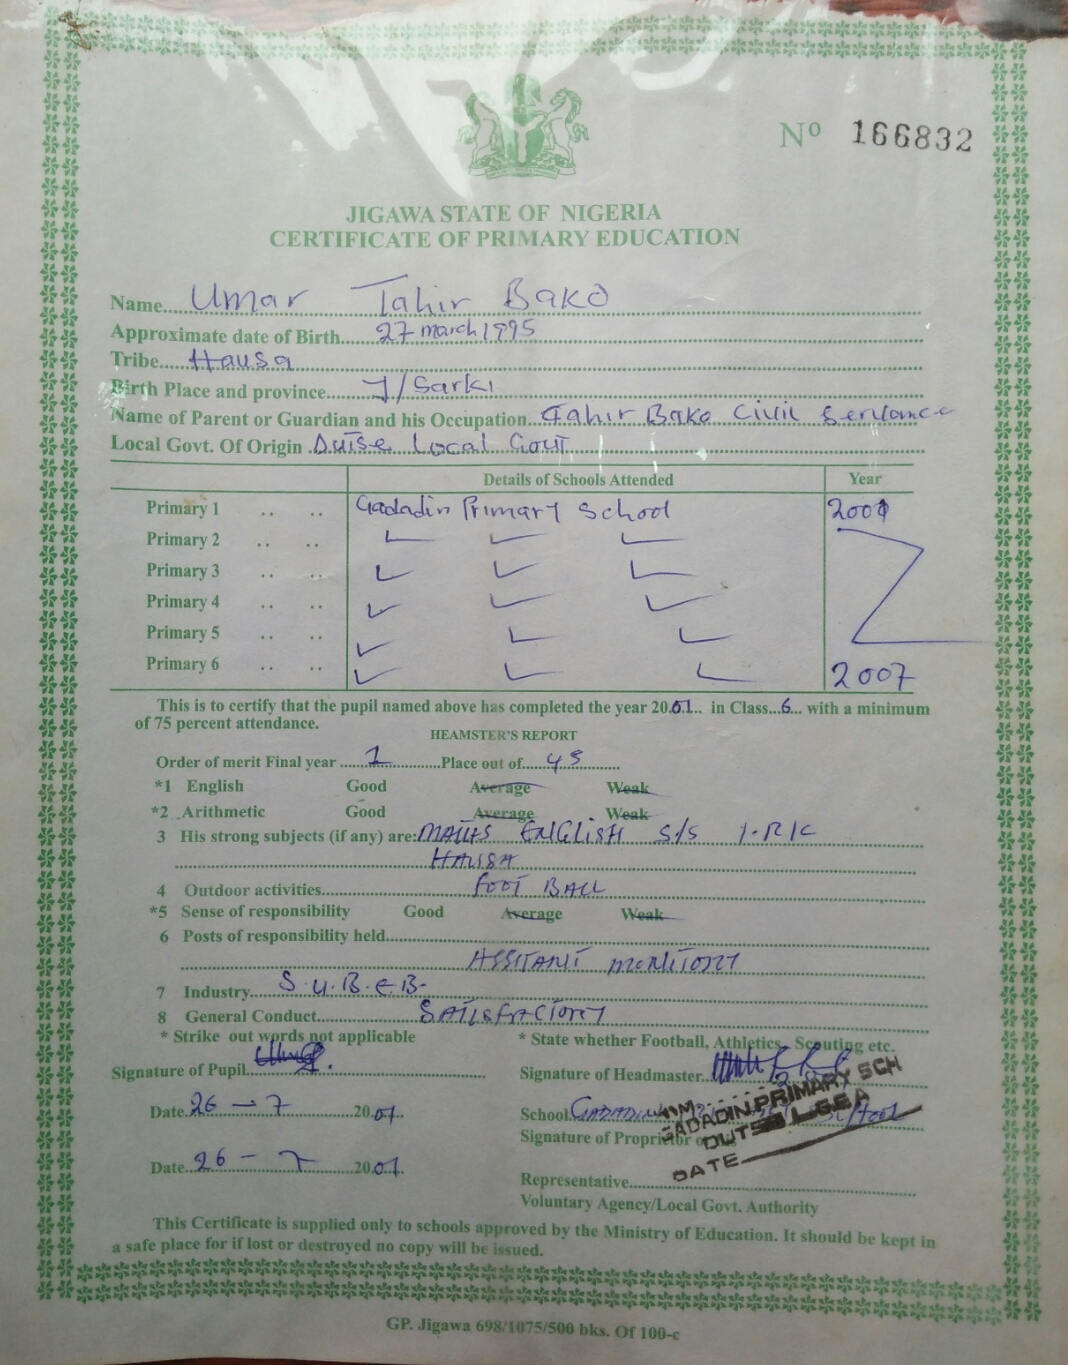 Nº 166832
JIGAWA STATE OF NIGERIA
CERTIFICATE OF PRIMARY EDUCATION
Name Umar Tahir Bako
Approximate date of Birth 27 march 1995
Tribe Hausa
Birth Place and province Y/Sarki
Name of Parent or Guardian and his Occupation Tahir Bako Civil Servance
Local Govt. Of Origin Dutse Local Govt
Details of Schools Attended Year
Primary 1 .. .. Gadadin Primary School
Primary 2 .. ..
Primary 3 .. ..
Primary 4 .. ..
Primary 5 .. ..
Primary 6 .. .. 2007
This is to certify that the pupil named above has completed the year 20 in Class 6 with a minimum
of 75 percent attendance.
HEAMSTER'S REPORT
Order of merit Final year 1 Place out of 45
*1 English Good Average Weak
*2 Arithmetic Good Average Weak
3 His strong subjects (if any) are: MATHS ENGLISH S/S I.R/C
HAUSA
4 Outdoor activities FOOT BALL
*5 Sense of responsibility Good Average Weak
6 Posts of responsibility held
ASSITANT MONITORY
7 Industry S.U.B.E.B.
8 General Conduct SATISFACTORY
* Strike out words not applicable * State whether Football, Athletics, Scouting etc.
Signature of Pupil Signature of Headmaster
Date 26 - 7 20 School GADADIN
H/M
GADADIN PRIMARY SCH
DUTSE LGEA
DATE
Signature of Proprietor
Date 26 - 7 20
Representative
Voluntary Agency/Local Govt. Authority
This Certificate is supplied only to schools approved by the Ministry of Education. It should be kept in
a safe place for if lost or destroyed no copy will be issued.
GP. Jigawa 698/1075/500 bks. Of 100-c